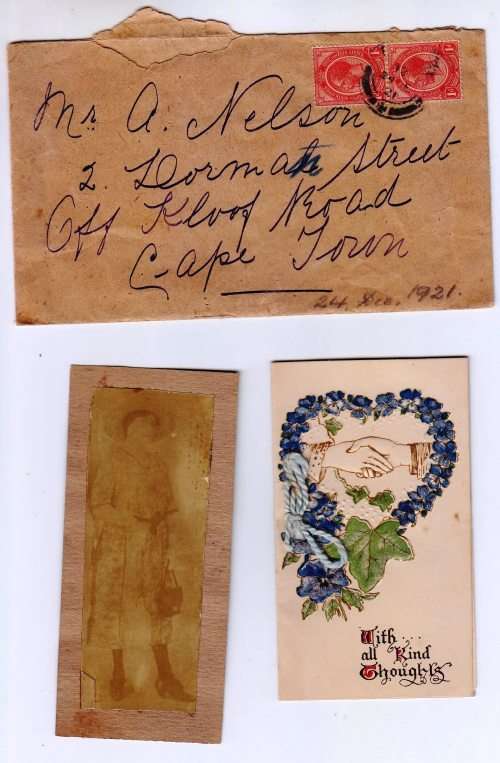 Mr A. Nelson
2. Dormah Street
Off Kloof Road
Cape Town
24 Dec. 1921.
With...
all Kind
Thoughts